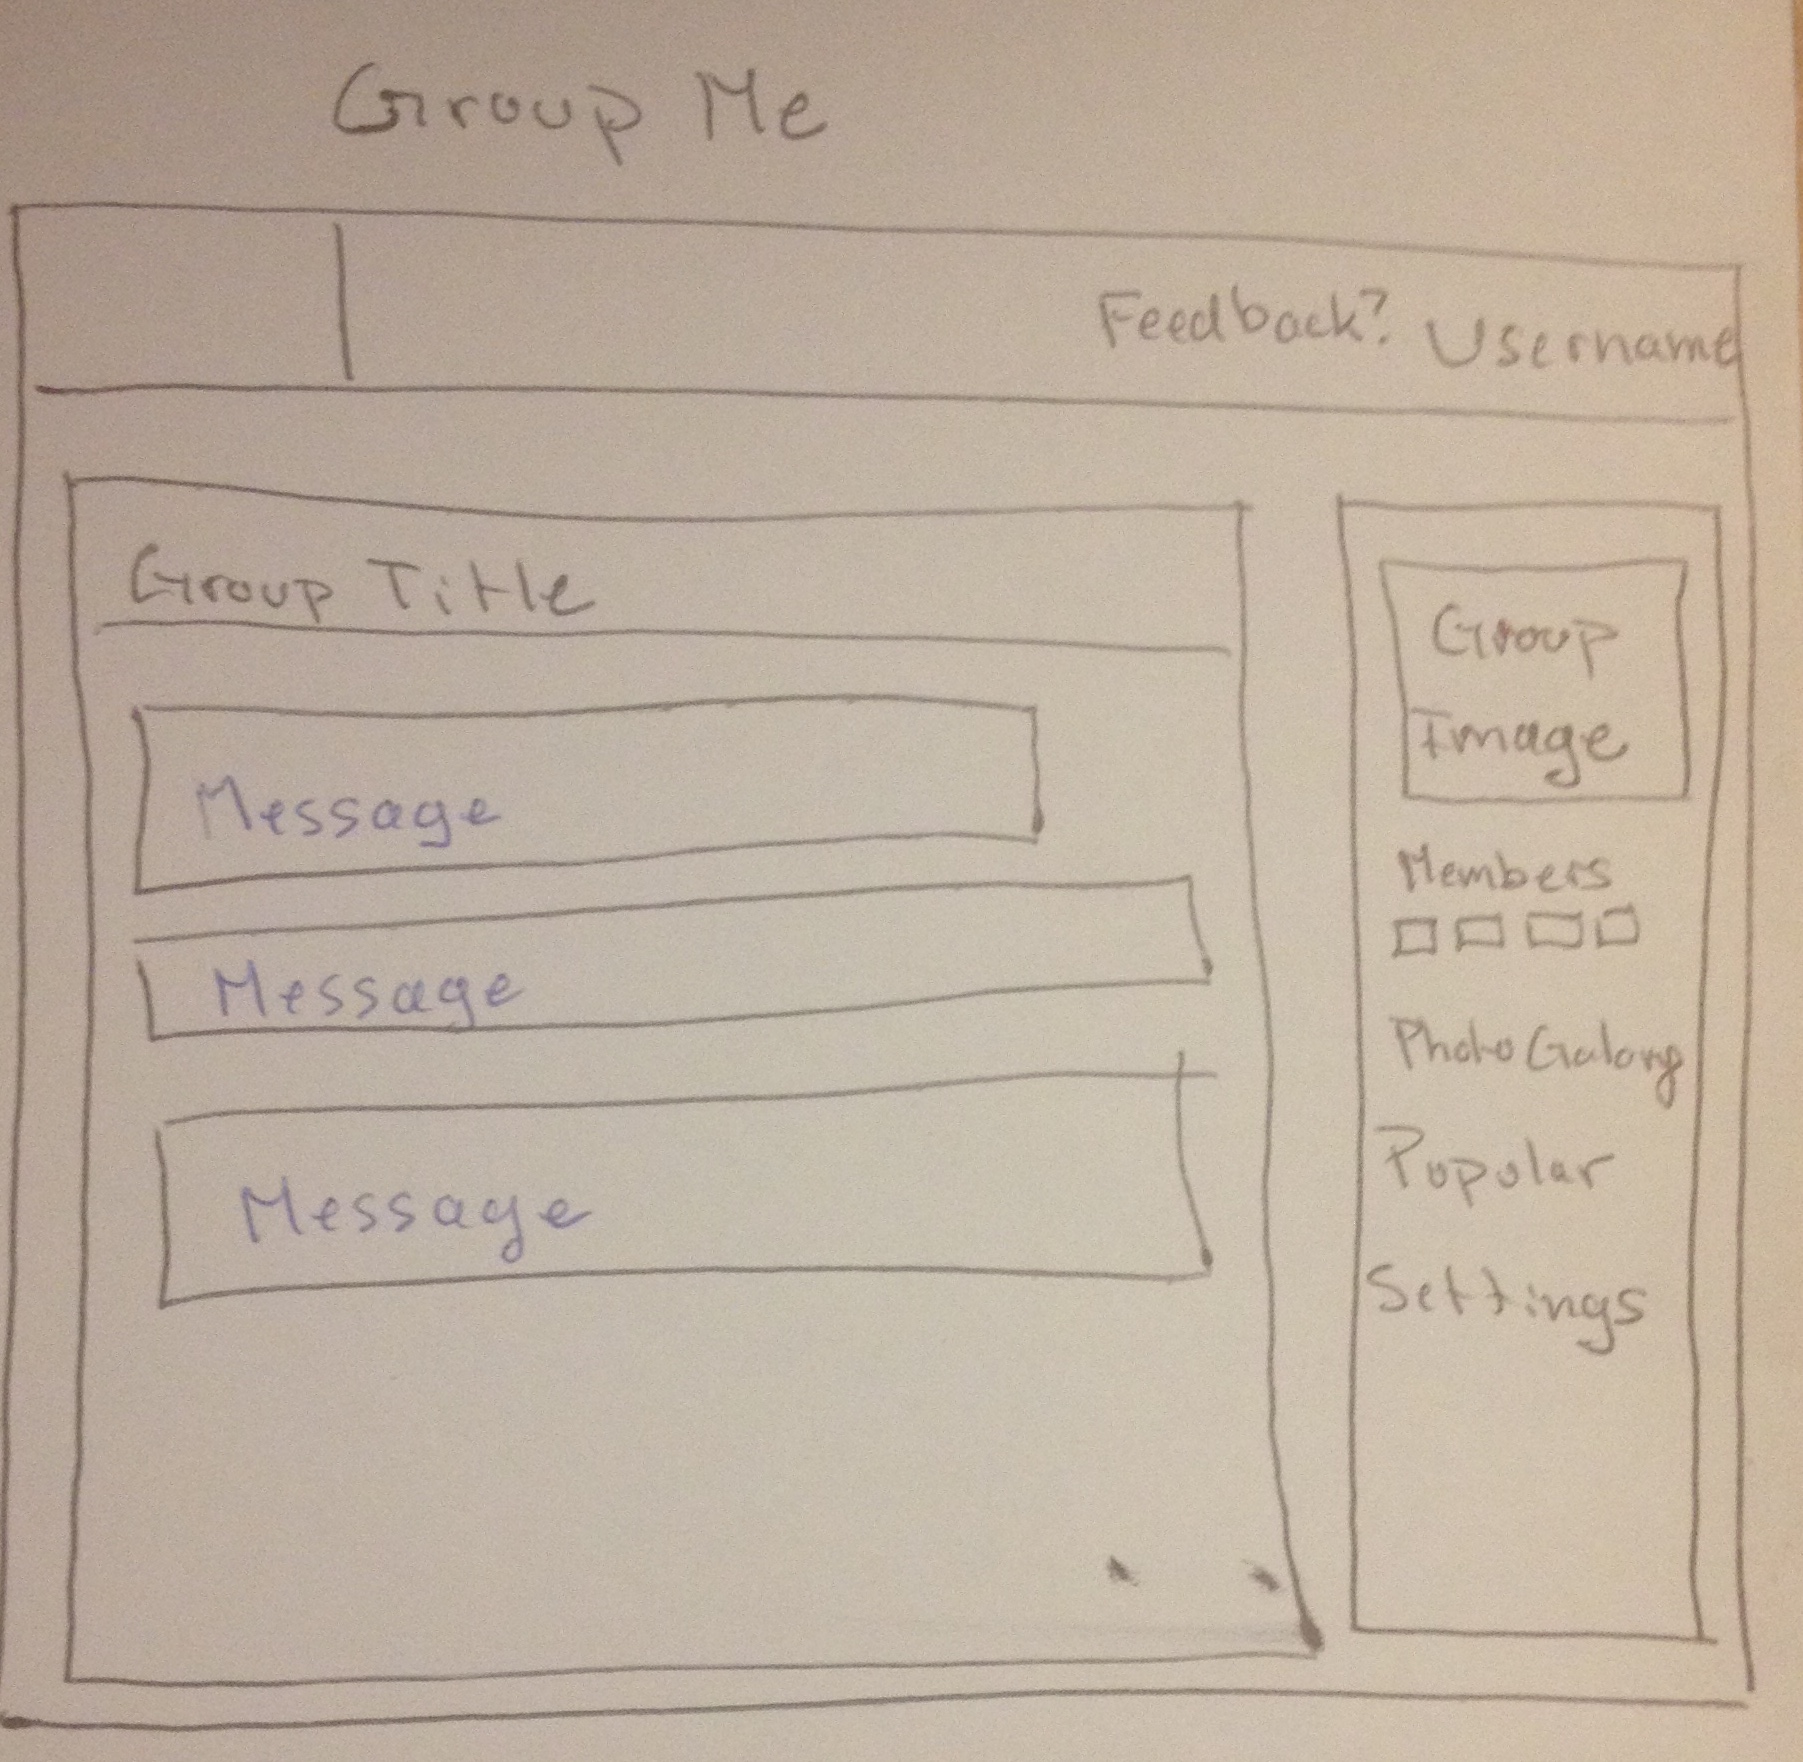 Group Me
Feedback? Username
Group Title
Message
Message
Message
Group
Image
Members
Photo Galary
Popular
Settings